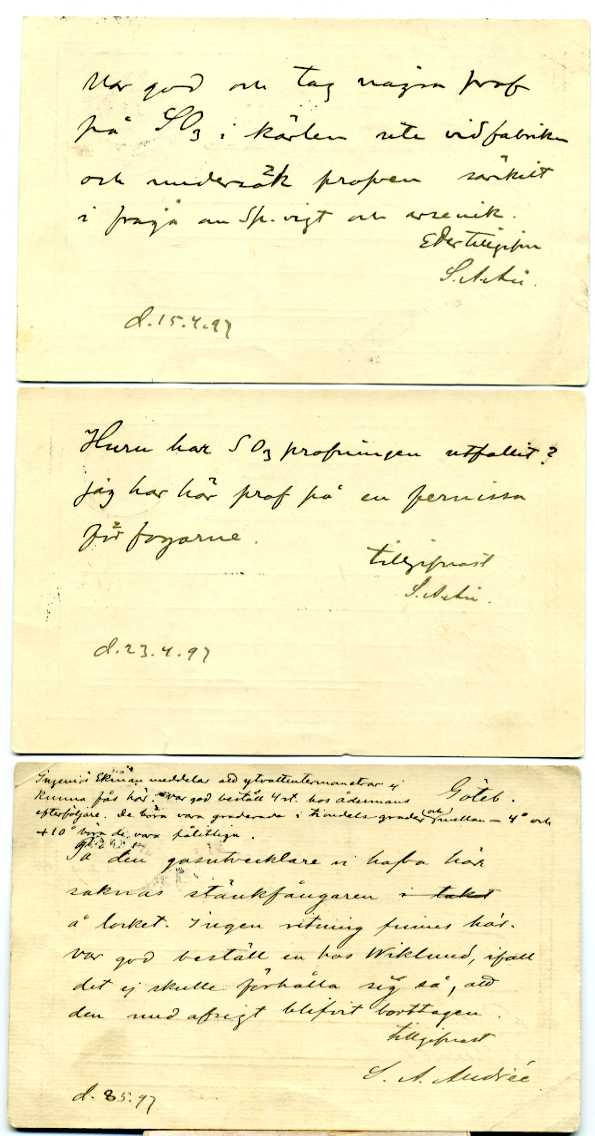 Var god och tag några prof
på SO3 i kärlen ute vid fabriken
och undersök profven särskilt
i fråga om Sp.vigt och arsenik.
Eder tillgifne
S. A. Ae
d. 15.4.97
Huru har SO3 profningen utfallit?
jag har här prof på en fernissa
för fogarne.
tillgifnast
d. 23.4.97
Ingeniör Ekman meddelar att ytvattentermometrar ej
Göteb.
kunna fås här. Var god beställ 4 st. hos ådermans
efterföljare. De böra vara graderade i tiondels grader (och) mellan - 4° och
+10° böra de vara pålitliga.
På den gasutvecklare vi hafva här
saknas stänkfångaren i taket
å locket. Ingen ritning finnes här.
Var god beställ en hos Wiklund, ifall
det ej skulle förhålla sig så, att
den med afsigt blifvit borttagen.
tillgifnast
S. A. Andrée
d. 8 5.97